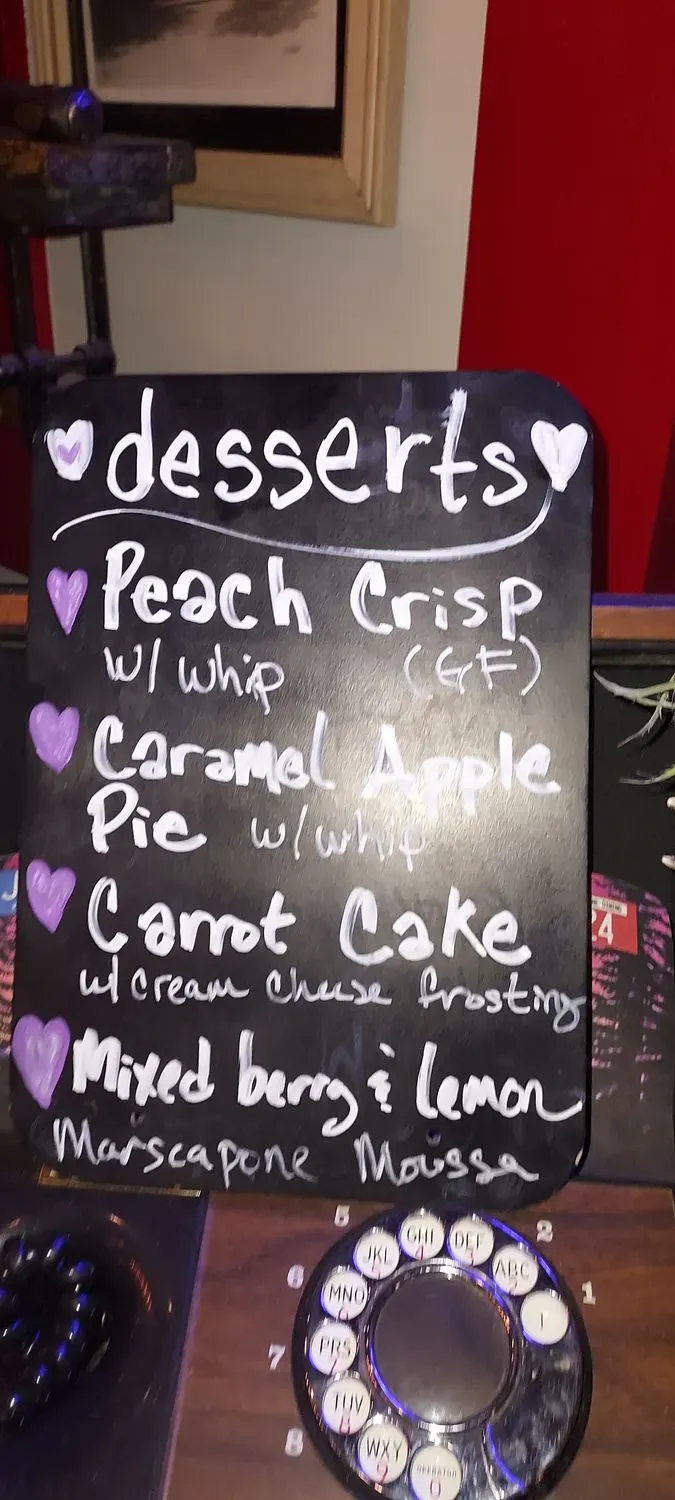 desserts
Peach Crisp
w/ whip (GF)
Caramel Apple
Pie w/ whip
Carrot Cake
w/ cream cheese frosting
Mixed berry & lemon
Marscapone Mousse
24
5
GHI
DEF
2
JKL
ABC
6
MNO
1
7
PRS
TUV
8
8
WXY
9
OPERATOR
0